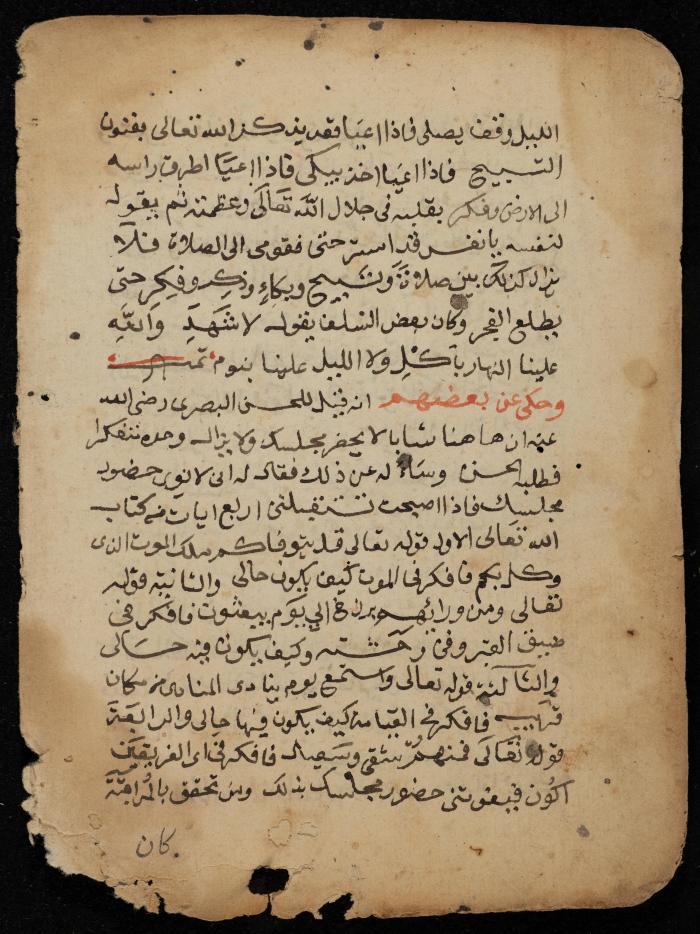 الليل وقف يصلى فاذا اعيا فقد يذكر الله تعالى بفنون
التسبيح فاذا اعيا اخذ يبكى فاذا اعيا اطرق راسه
الى الارض وفكر بقلبه فى جلال الله تعالى وعظمته ثم يقول
لنفسه يا نفس قد استرحتى فقومى الى الصلاة فلا
يزال كذلك بين صلاة وتسبيح وبكاء وذكر وفكر حتى
يطلع الفجر وكان بعض السلف يقول لا شهد والله
علينا النهار باكل ولا الليل علينا بنوم تمت
وحكى عن بعضهم انه قيل للحسن البصرى رضى الله
عنه ان هاهنا شابا لا يحضر مجلسك ولا يزال وحده متفكرا
فطلبه الحسن وساله عن ذلك فقال له انى لانوى حضور
مجلسك فاذا اصبحت تستقبلنى اربع ايات من كتاب
الله تعالى الاول قوله تعالى قل يتوفاكم ملك الموت الذى
وكل بكم فافكر فى الموت كيف يكون حالى والثانية قوله
تعالى ومن ورائهم برزخ الى يوم يبعثون فافكر فى
ضيق القبر وفى وحشته وكيف يكون فيه حالى
والثالثة قوله تعالى واستمع يوم ينادى المنادى من مكان
قريب فافكر فى القيامة كيف يكون فيها حالى والرابعة
قوله تعالى فمنهم شقى وسعيد فافكر فى اى الفريقين
اكون فيفوتنى حضور مجلسك بذلك ومن تحقق بالمراقبة
كان